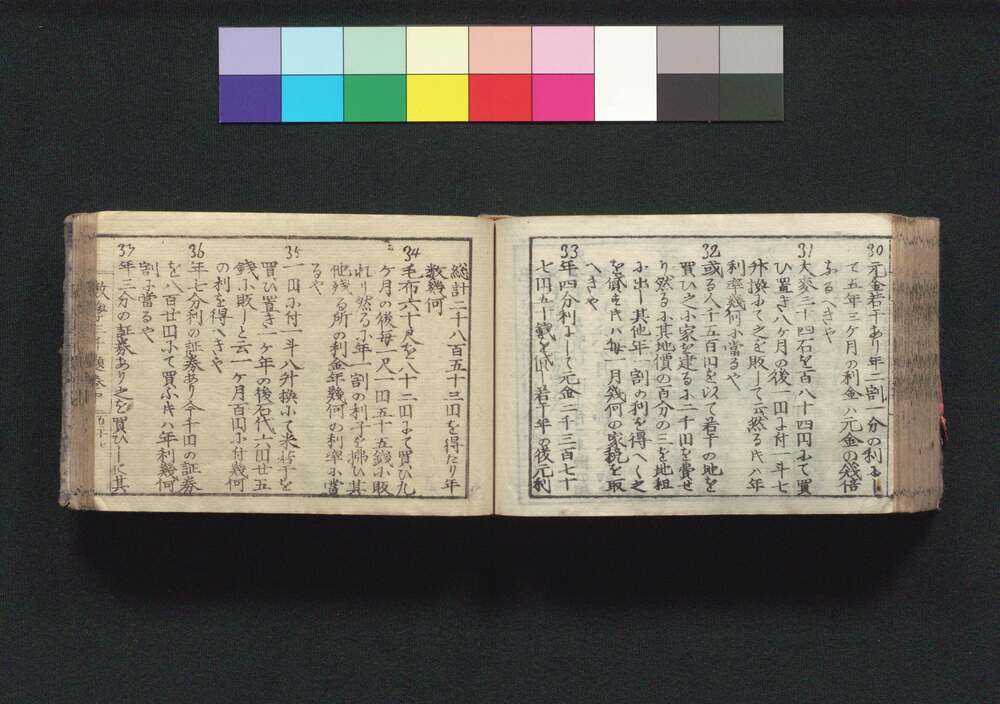 30 元金若干あり年二割一分の利にし
て五年三ケ月の利金ハ元金の幾倍
なるへきや
31 大麥三十四石を百八十四円にて買
ひ置き八ケ月の後一円に付一斗七
升換にて之を敗して云然る片ハ年
利率幾何に當るや
32 或る人千五百円を以て若干の地を
買ひ之に家を建るに二千円を費せ
り然るに其地價の百分の三を地租
に出し其他年一割の利を得へく之
を貸す片ハ毎一月幾何の家税を取
へきや
33 年四分利にして元金二千三百七十
七円五十銭を 若干年の後元利
総計二千八百五十三円を得たり年
数幾何
34 毛布六十尺を八十二円にて買ひ九
ケ月の後毎一尺一円五十五銭に敗
れり然るに年一割の利子を拂ひ其
他残る所の利金年幾何の利率に當
るや
35 一円に付一斗八升換にて米若干を
買ひ置き一ケ年の後石代六円廿五
銭に敗しと云一ケ月百円に付幾何
の利を得へきや
36 年七分利の証券あり今千円の証券
を八百廿円にて買ふ片ハ年利幾何
割に當るや
37 年三分の証券あり之を買ひしに其